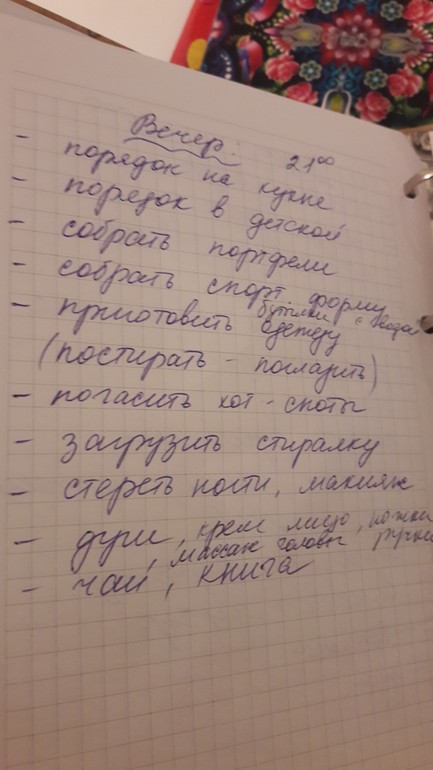 Вечер: 21⁰⁰
- порядок на кухне
- порядок в детской
- собрать портфели
- собрать спорт форму
бутылки с водой
- приготовить одежду
(постирать - погладить)
- погасить хот - споты
- загрузить стиралку
- стереть ногти, макияж
- душ, крем лицо, ножки
, массаж головы ручки
- чай, книга